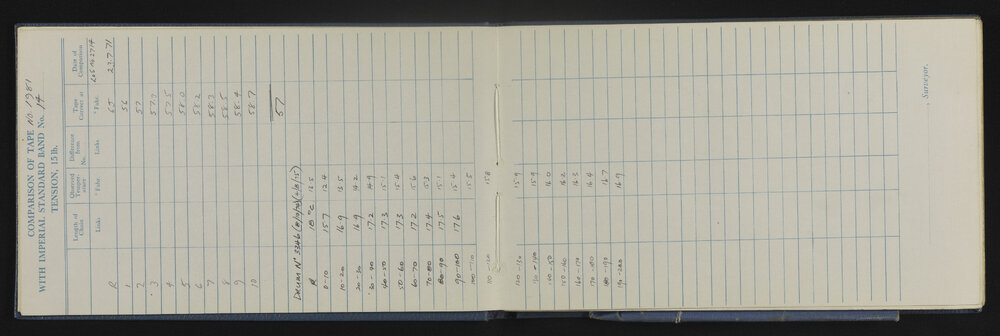 COMPARISON OF TAPE NO. 1981
WITH IMPERIAL STANDARD BAND No. 14
TENSION, 15 lb.
Length of Chain Observed Temperature Difference from No. Tape Correct at Date of Comparison
Links ° Fahr. Links ° Fahr. LOG No 2714
R 65 23.7.71
1 56
2 57
3 57.0
4 57.5
5 58.0
6 58.2
7 58.3
8 58.5
9 58.4
10 58.7
57
DRUM No 3346
R 18 °C 12.5
0-10 15.7 12.4
10-20 16.9 13.5
20-30 16.9 14.2
30-40 17.2 14.9
40-50 17.3 15.1
50-60 17.3 15.4
60-70 17.2 15.6
70-80 17.4 15.3
80-90 17.5 15.1
90-100 17.6 15.4
100-110 15.5
110-120 15.8
120-130 15.9
130-140 15.9
140-150 16.0
150-160 16.2
160-170 16.3
170-180 16.4
180-190 16.7
190-200 16.9
, Surveyor.